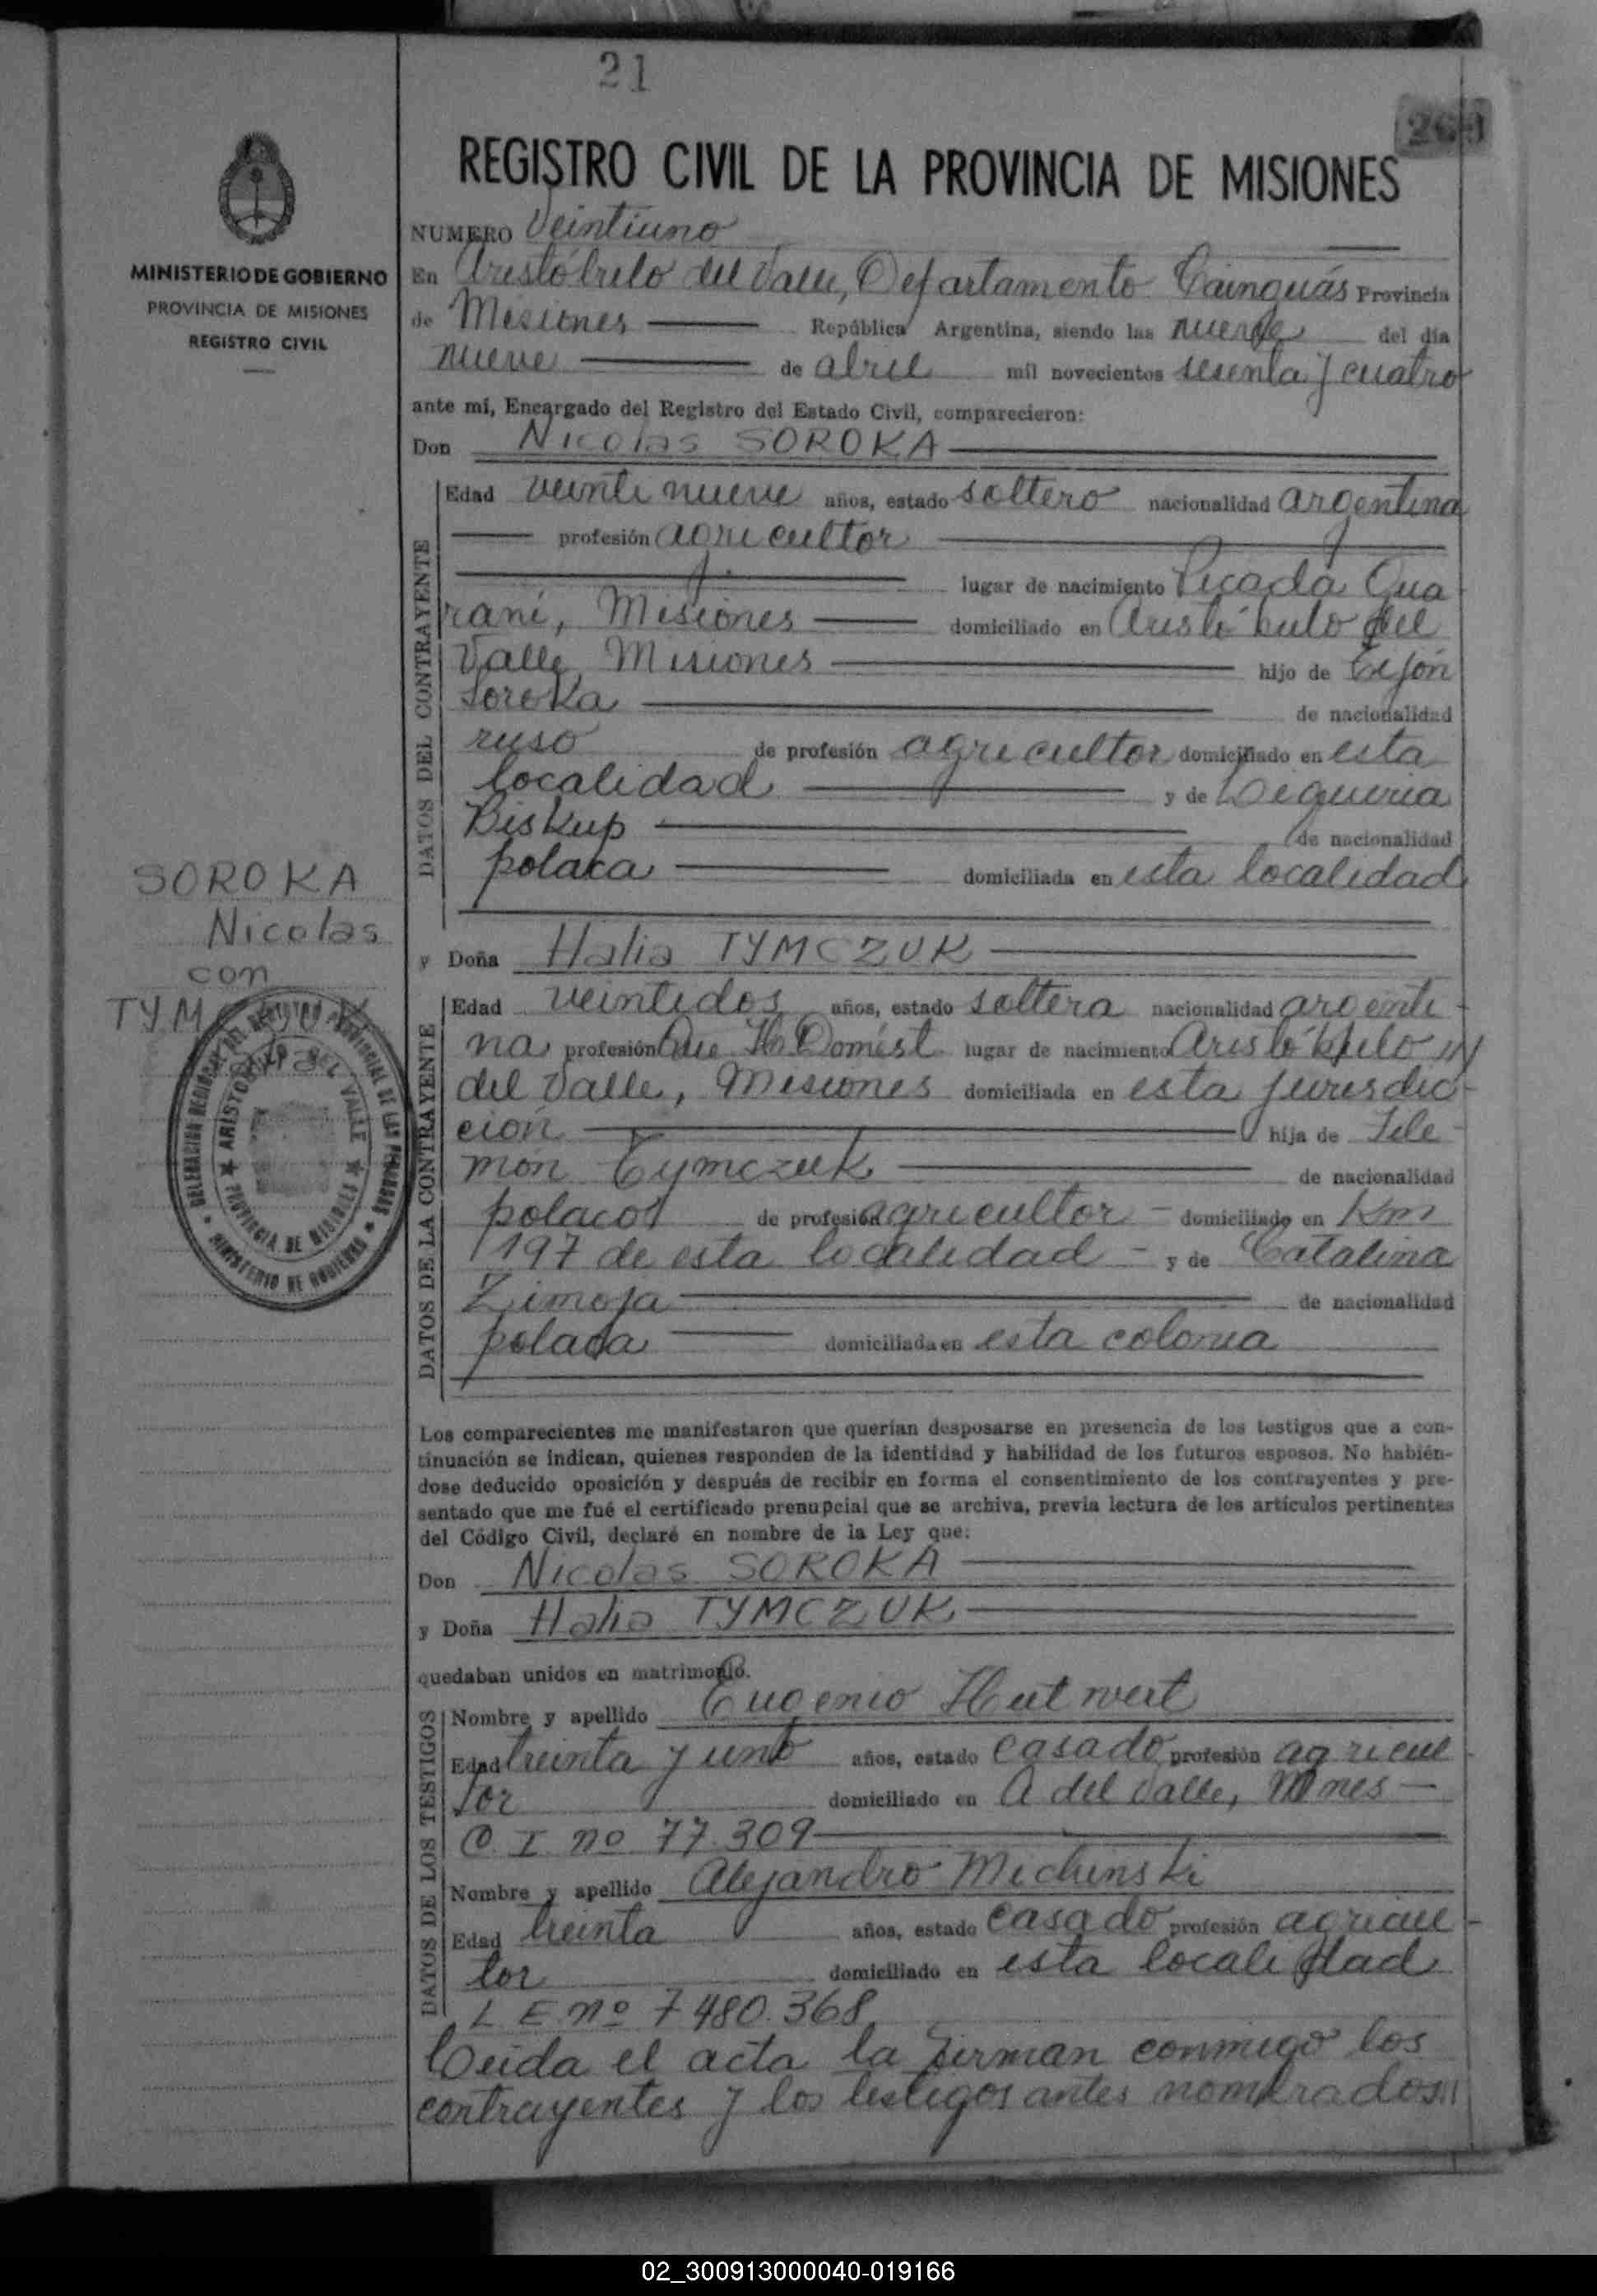 21
269
REGISTRO CIVIL DE LA PROVINCIA DE MISIONES
MINISTERIO DE GOBIERNO
PROVINCIA DE MISIONES
REGISTRO CIVIL
NUMERO Veintiuno
En Aristóbulo del Valle, Departamento Cainguás Provincia
de Misiones República Argentina, siendo las nueve del día
nueve de abril mil novecientos sesenta y cuatro
ante mí, Encargado del Registro del Estado Civil, comparecieron:
Don Nicolas SOROKA
DATOS DEL CONTRAYENTE
Edad veinti nueve años, estado soltero nacionalidad argentina
profesión agricultor
lugar de nacimiento Picada Gua
raní, Misiones domiciliado en Aristóbulo del
Valle, Misiones hijo de Trifón
Soroka de nacionalidad
ruso de profesión agricultor domiciliado en esta
localidad y de
Biskup de nacionalidad
polaca domiciliada en esta localidad
SOROKA
Nicolas
con
TYMCZUK
Halia
DELEGACION REGIONAL DEL REGISTRO PROVINCIAL DE LAS PERSONAS
ARISTOBULO DEL VALLE
PROVINCIA DE MISIONES
MINISTERIO DE GOBIERNO
y Doña Halia TYMCZUK
DATOS DE LA CONTRAYENTE
Edad veintidos años, estado soltera nacionalidad argenti-
na profesión Que Hs Domést lugar de nacimiento Aristóbulo
del Valle, Misiones domiciliada en esta jurisdic-
ción hija de File-
món Tymczuk de nacionalidad
polaco de profesión agricultor - domiciliado en Km
197 de esta localidad - y de Catalina
Zimoja de nacionalidad
polaca domiciliada en esta colonia
Los comparecientes me manifestaron que querían desposarse en presencia de los testigos que a con-
tinuación se indican, quienes responden de la identidad y habilidad de los futuros esposos. No habién-
dose deducido oposición y después de recibir en forma el consentimiento de los contrayentes y pre-
sentado que me fué el certificado prenupcial que se archiva, previa lectura de los artículos pertinentes
del Código Civil, declaré en nombre de la Ley que:
Don Nicolas SOROKA
y Doña Halia TYMCZUK
quedaban unidos en matrimonio.
DATOS DE LOS TESTIGOS
Nombre y apellido Eugenio
Edad treinta y uno años, estado casado profesión agricul-
tor domiciliado en A del Valle, Mnes
C. I nº 77.309
Nombre y apellido Alejandro Michinski
Edad treinta años, estado casado profesión agricul-
tor domiciliado en esta localidad
L E nº 7480.368
Leida el acta la firman conmigo los
contrayentes y los testigos antes nombrados
02_300913000040-019166